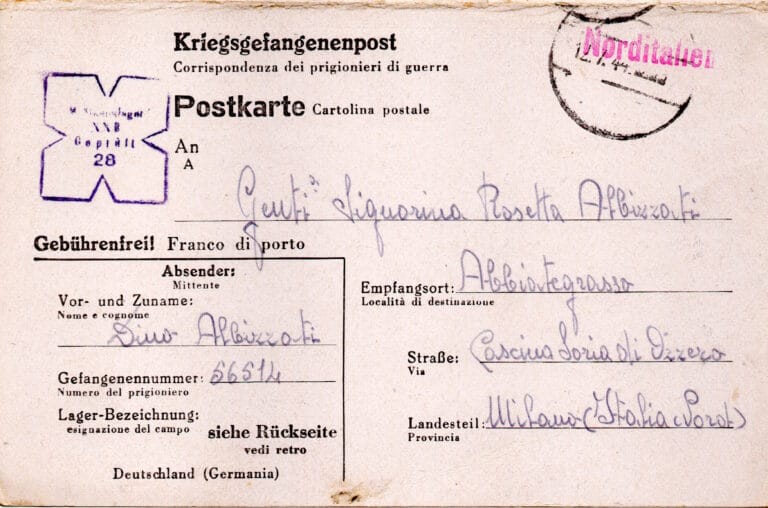 Kriegsgefangenenpost
Corrispondenza dei prigionieri di guerra
Norditalien
12.1.44
Postkarte Cartolina postale
XXB
Geprüft
28
An
A
Gentil Signorina Rosetta Albizzati
Gebührenfrei! Franco di porto
Absender:
Mittente
Vor- und Zuname:
Nome e cognome
Dino Albizzati
Gefangenennummer: 56514
Numero del prigioniero
Lager-Bezeichnung:
esignazione del campo
siehe Rückseite
vedi retro
Deutschland (Germania)
Empfangsort: Abbiategrasso
Località di destinazione
Straße: Cascina Soria di Ozzero
Via
Landesteil: Milano (Italia Nord)
Provincia